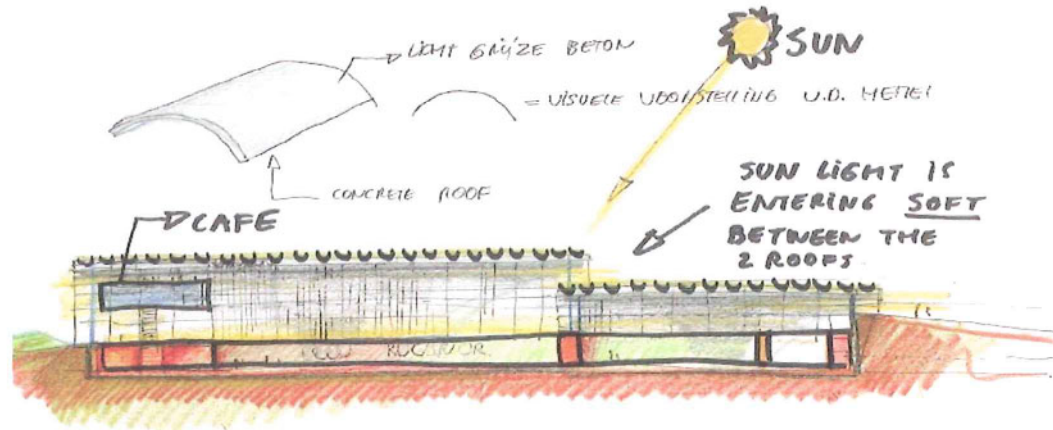 LIGHT GRIJZE BETON
SUN
= VISUELE VOORSTELLING V.D. HEMEL
CONCRETE ROOF
CAFE
SUN LIGHT IS
ENTERING SOFT
BETWEEN THE
2 ROOFS